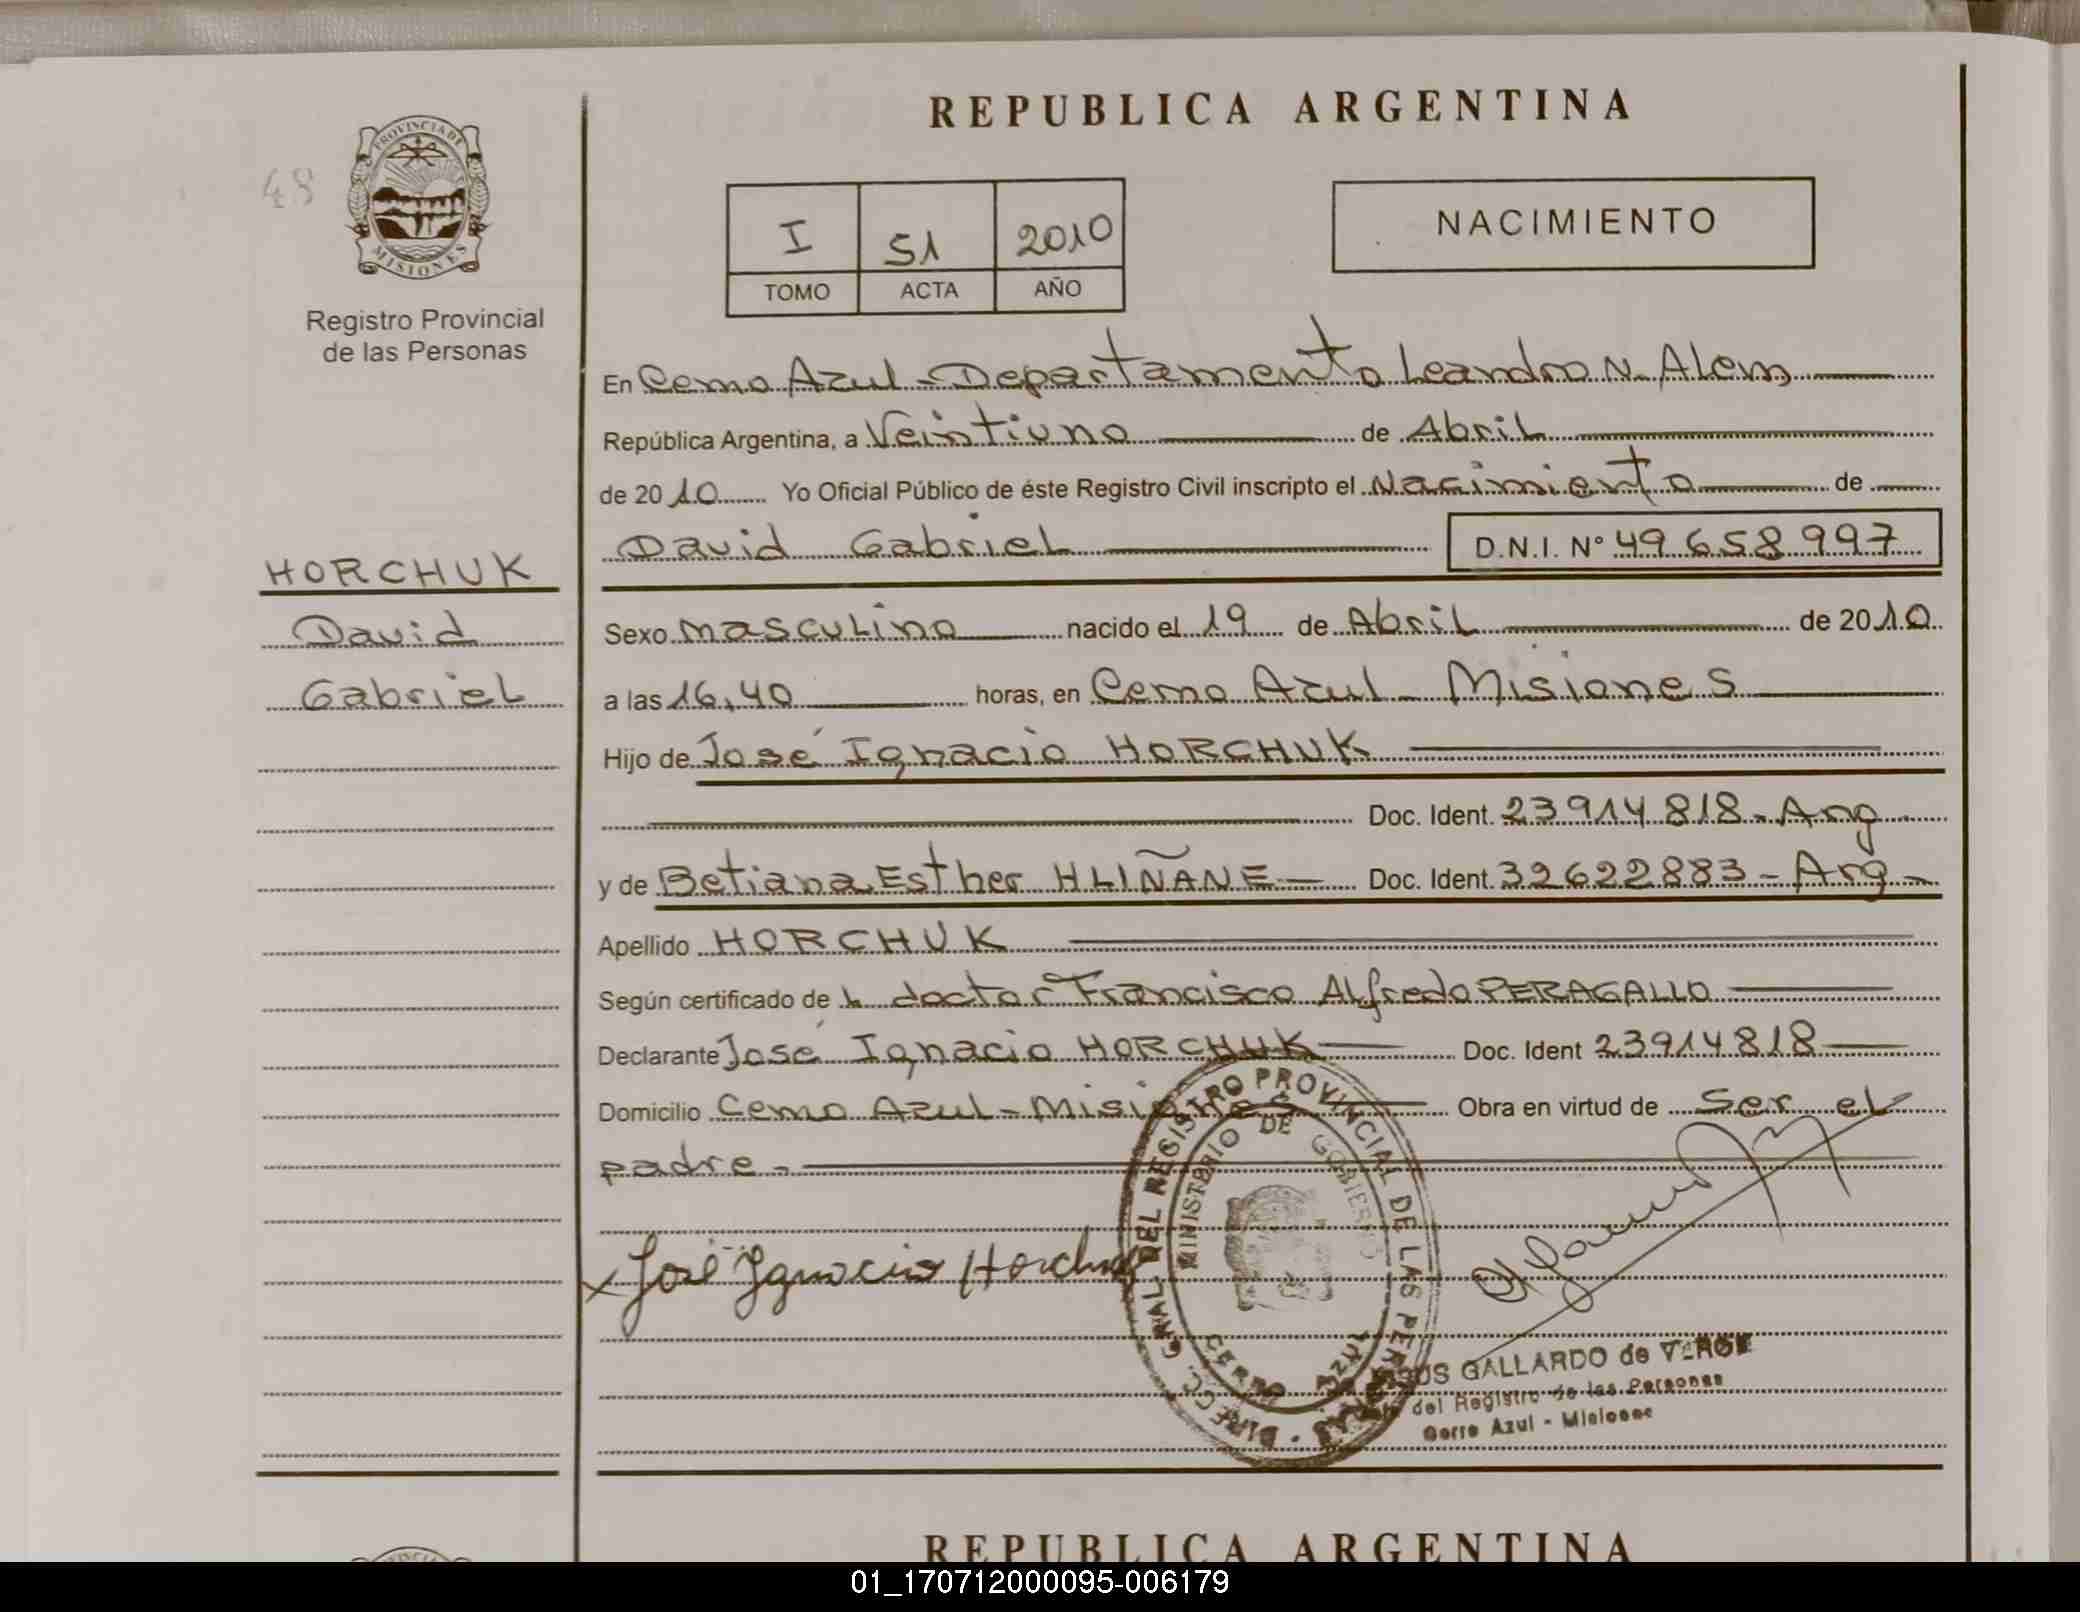 REPUBLICA ARGENTINA
48
PROVINCIA DE
MISIONES
Registro Provincial
de las Personas
I 51 2010
TOMO ACTA AÑO
NACIMIENTO
En Cerro Azul - Departamento Leandro N. Alem
República Argentina, a Veintiuno de Abril
de 2010 Yo Oficial Público de éste Registro Civil inscripto el Nacimiento de
David Gabriel D.N.I. Nº 49 658 997
HORCHUK
David
Gabriel
Sexo Masculino nacido el 19 de Abril de 2010
a las 16,40 horas, en Cerro Azul - Misiones
Hijo de José Ignacio HORCHUK
Doc. Ident. 23914818 - Arg
y de Betiana Esther HLIÑANE Doc. Ident. 32622883 - Arg -
Apellido HORCHUK
Según certificado de l doctor Francisco Alfredo PERAGALLO
Declarante José Ignacio HORCHUK Doc. Ident 23914818
Domicilio Cerro Azul - Misiones Obra en virtud de ser el
padre.
x José Ignacio Horchuk
DIRECC. GRAL. DEL REGISTRO PROVINCIAL DE LAS PERSONAS
MINISTERIO DE GOBIERNO
CERRO AZUL
GALLARDO de
del Registro de las Personas
Cerro Azul - Misiones
REPUBLICA ARGENTINA
01_170712000095-006179